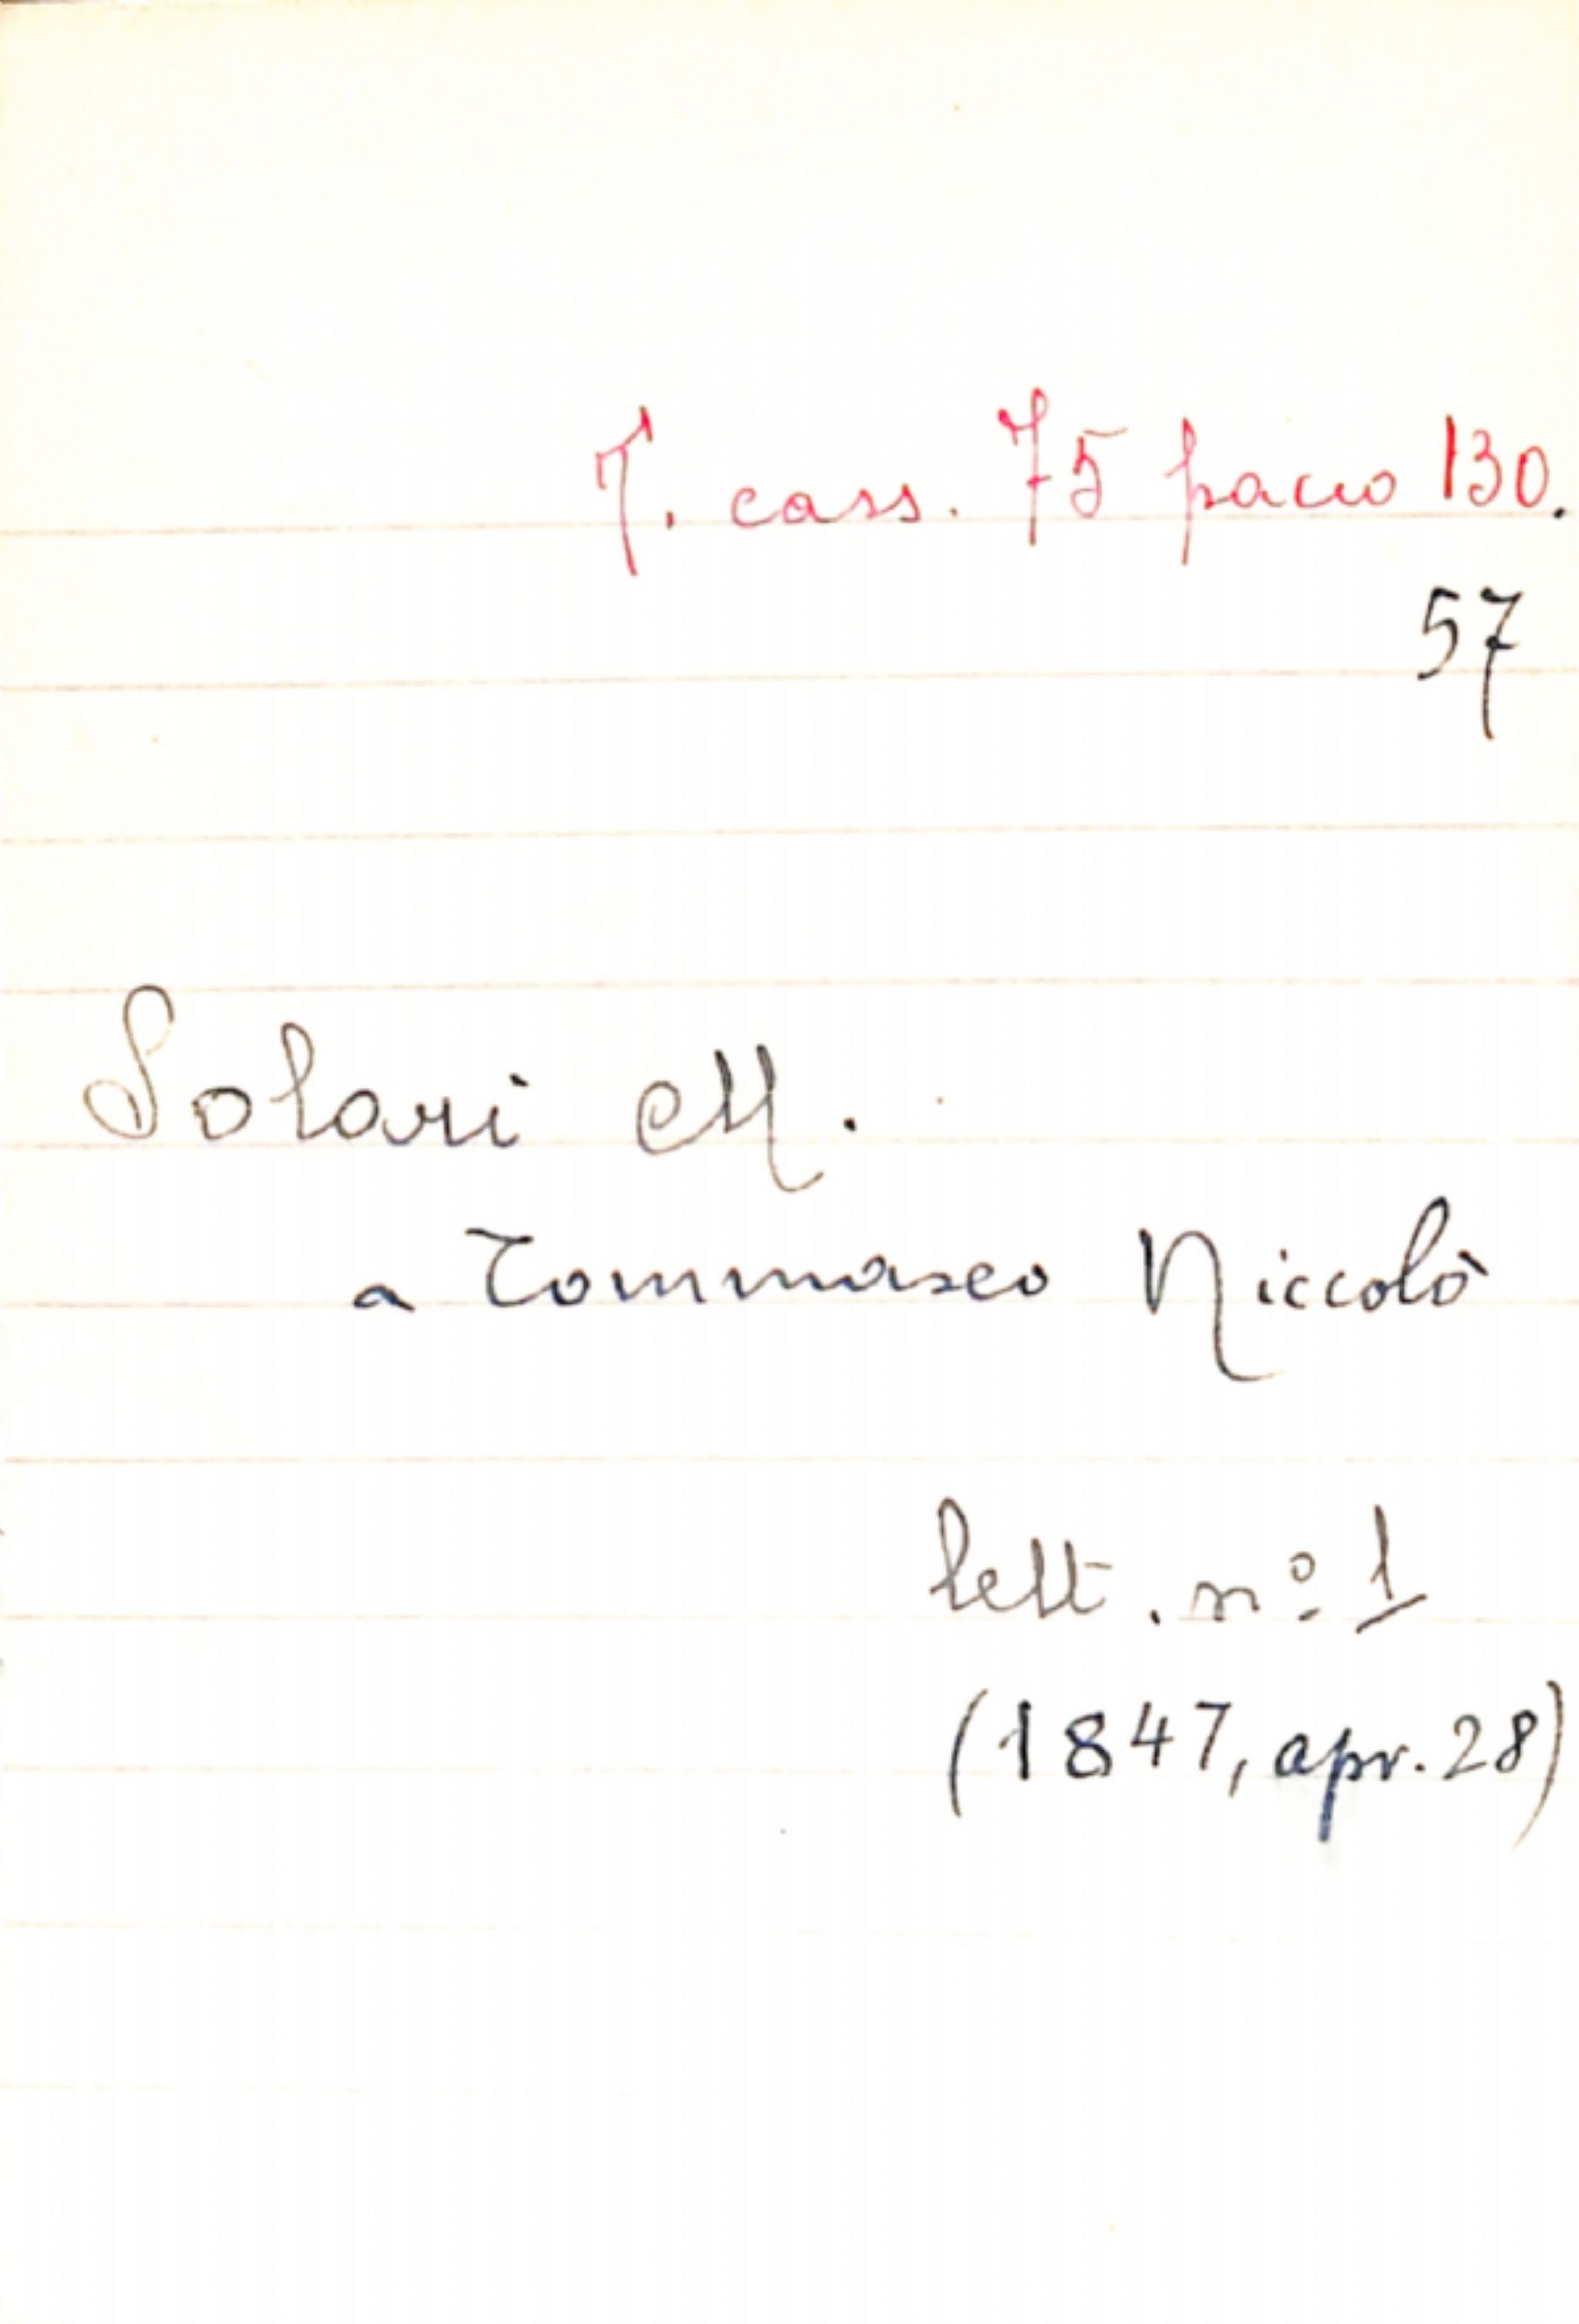 T. cass. 75 pacco 130.
57
Solari M.
a Tommaseo Niccolò
lett. nº 1
(1847, apr. 28)